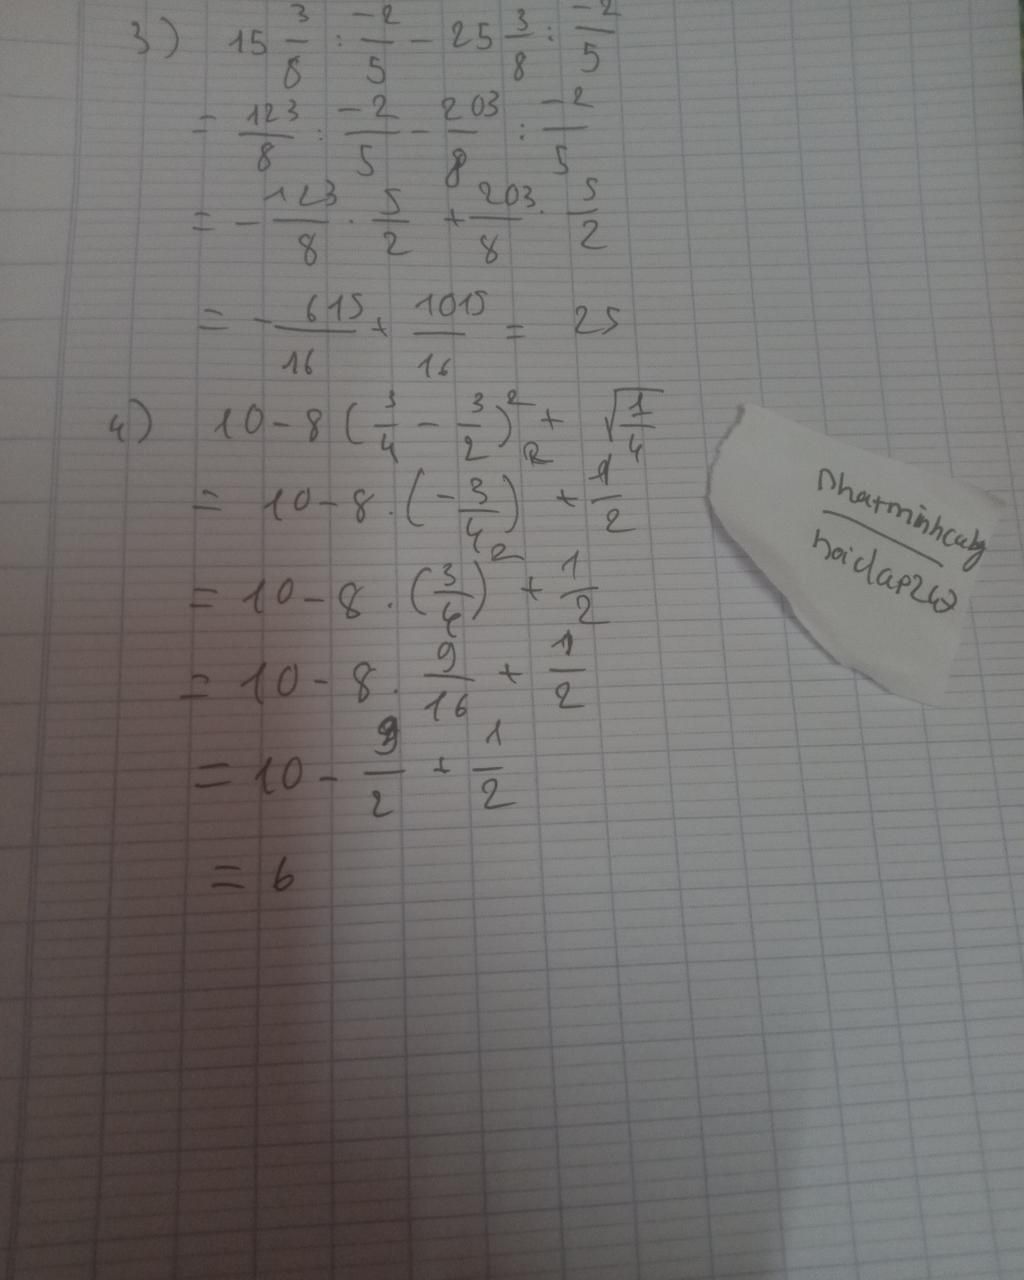 3) 15 3/8 : -2/5 - 25 3/8 : -2/5
= 123/8 : -2/5 - 203/8 : -2/5
= - 123/8 . 5/2 + 203/8 . 5/2
= - 615/16 + 1015/16 = 25
4) 10 - 8 (3/4 - 3/2)² + √(1/4)
= 10 - 8 . (-3/4)² + 1/2
= 10 - 8 . (3/4)² + 1/2
= 10 - 8 . 9/16 + 1/2
= 10 - 9/2 + 1/2
= 6
nhatminhcuty
hoidap247